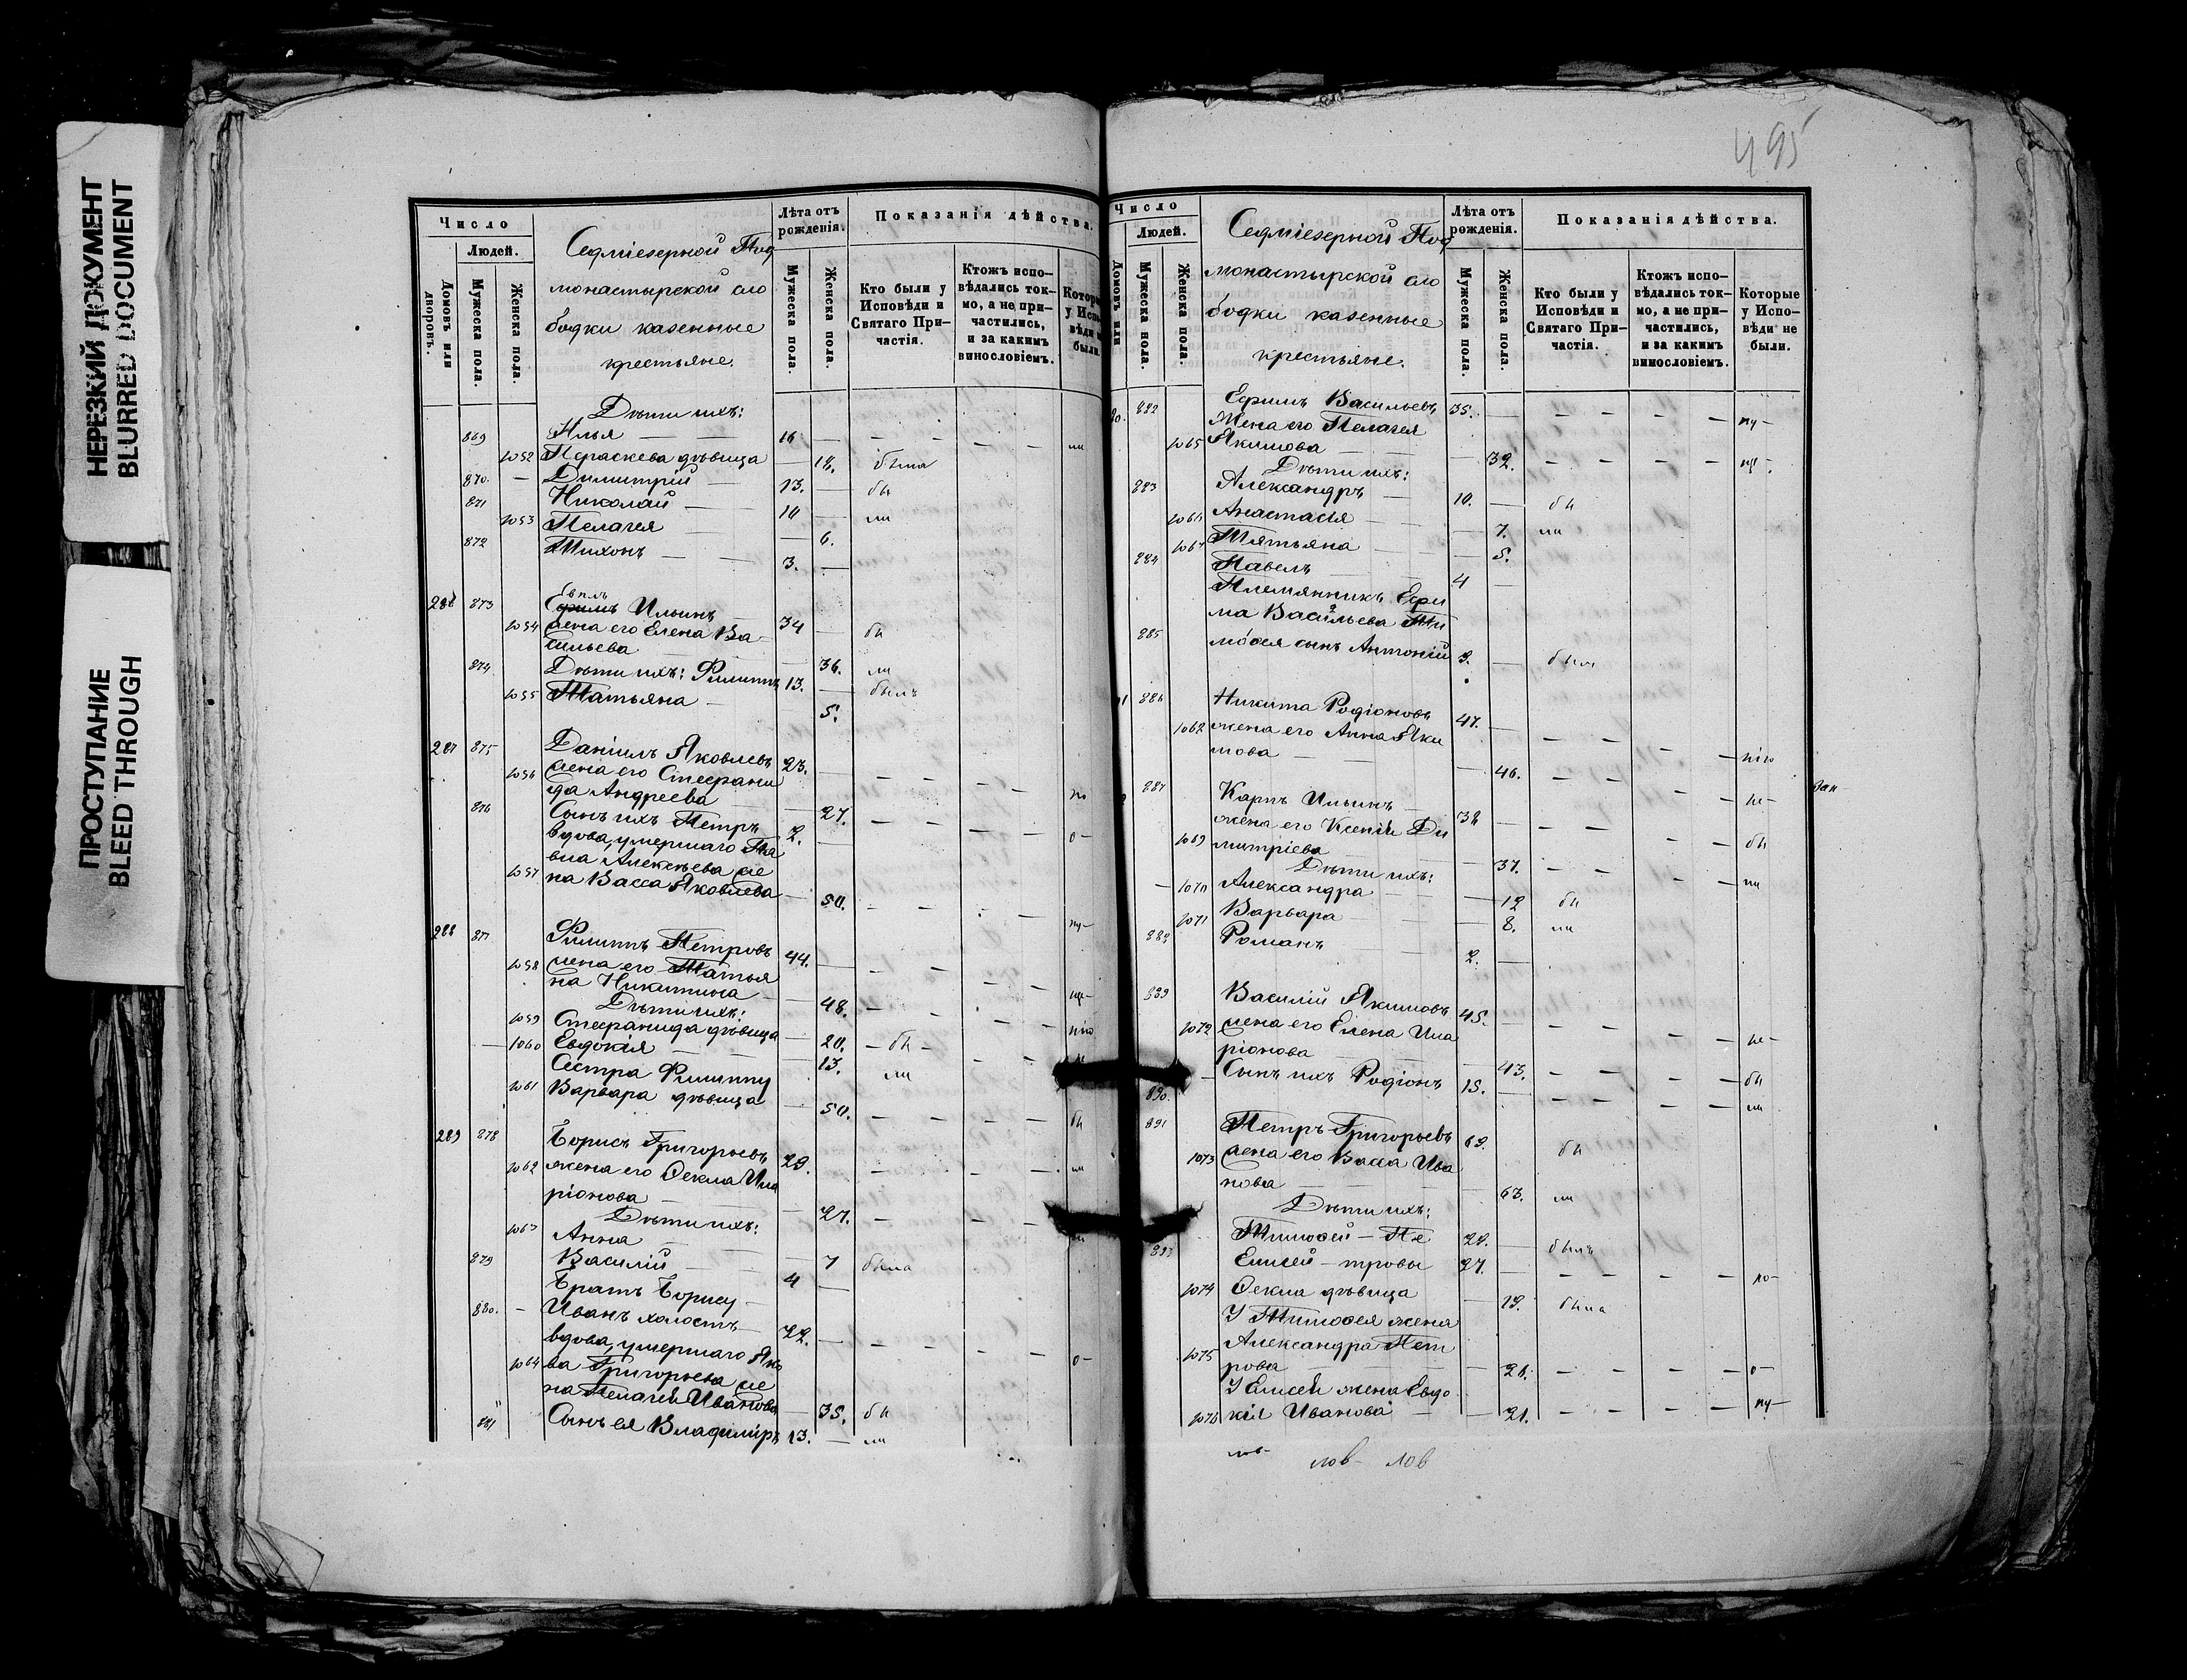 НЕРЕЗКИЙ ДОКУМЕНТ
BLURRED DOCUMENT
ПРОСТУПАНИЕ
BLEED THROUGH
Число
Людей.
Домовъ или дворовъ.
Мужеска пола.
Женска пола.
Седміезерной Под
монастырской сло
бодки казенные
крестьяне.
Лѣта отъ рожденія.
Мужеска пола.
Женска пола.
Показанія дѣйства.
Кто были у Исповѣди и Святаго Причастія.
Ктожъ исповѣдались токмо, а не причастились, и за какимъ винословіемъ.
Дѣти ихъ:
869 Илья 16
1052 Параскева дѣвица 18. была
870. Димитрій 13. бы
871 Николай 10 ли
1053 Пелагея 6.
872 Тихонъ 3.
873 Ильинъ 34 бы
1054 жена его Елена Ва
сильева 36. ли
874 Дѣти ихъ: Филиппъ 13. былъ
1055 Татьяна 5.
287 875 Даніилъ Яковлевъ 23.
1056 жена его Стефани
да Андреева 27.
876 Сынъ ихъ Петръ 2.
вдова, умершаго Па
вла Алексѣева же
1057 на Васса Яковлева 50.
288 877 Филиппъ Петровъ 44.
1058 жена его Татья
на Никитина 48.
Дѣти ихъ:
1059 Стефанида дѣвица 20. бы
1060 Евдокія 13. ли
Сестра Филиппу
1061 Варвара дѣвица 50.
289 878 Борисъ Григорьевъ 29.
1062 жена его Ѳекла Ила
ріонова 27.
Дѣти ихъ:
1063 Анна 7 была
879 Василій 4
Братъ Борису
880. Иванъ холостъ 22.
вдова, умершаго Яко
1064 ва Григорьева же
на Пелагея Иванова 35. бы
881 Сынъ ея Владиміръ 13. ли
495
Число
Людей.
Домовъ или
Мужеска пола.
Женска пола.
Седміезерной Под
монастырской сло
бодки казенные
крестьяне.
Лѣта отъ рожденія.
Мужеска пола.
Женска пола.
Показанія дѣйства.
Кто были у Исповѣди и Святаго Причастія.
Ктожъ исповѣдались токмо, а не причастились, и за какимъ винословіемъ.
Которые у Исповѣди не были.
882 Ефимъ Васильевъ 35.
Жена его Пелагея
1065 Якимова 32.
Дѣти ихъ:
883 Александръ 10. бы
1066 Анастасія 7. ли
1067 Татьяна 5.
884 Павелъ 4
Племянникъ Ефи
ма Васильева Ти
885 моѳея сынъ Антоній 9. былъ
886 Никита Родіоновъ 47.
жена его Анна Яки
мова 46.
887 Карпъ Ильинъ 38
жена его Ксенія Ди
1069 митріева 37.
Дѣти ихъ:
1070 Александра 12 бы
1071 Варвара 8. ли
888 Романъ 2.
889 Василій Якимовъ 45.
1072 жена его Елена Ила
ріонова 43.
890. Сынъ ихъ Родіонъ 15.
891 Петръ Григорьевъ 69. бы
1073 жена его Васса Ива
нова 63. ли
Дѣти ихъ:
Тимоѳей — Пе 29. былъ
893 Елисей — тровы 27.
1074 Ѳекла дѣвица 19. была
У Тимоѳея жена
Александра Пет
1075 рова 26.
У Елисея жена Евдо
1076 кія Иванова 21.